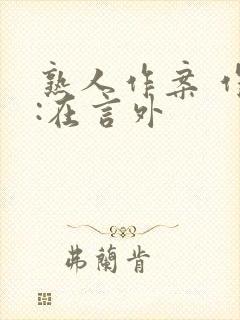 熟人作案 作
:在言外
弗蘭肯